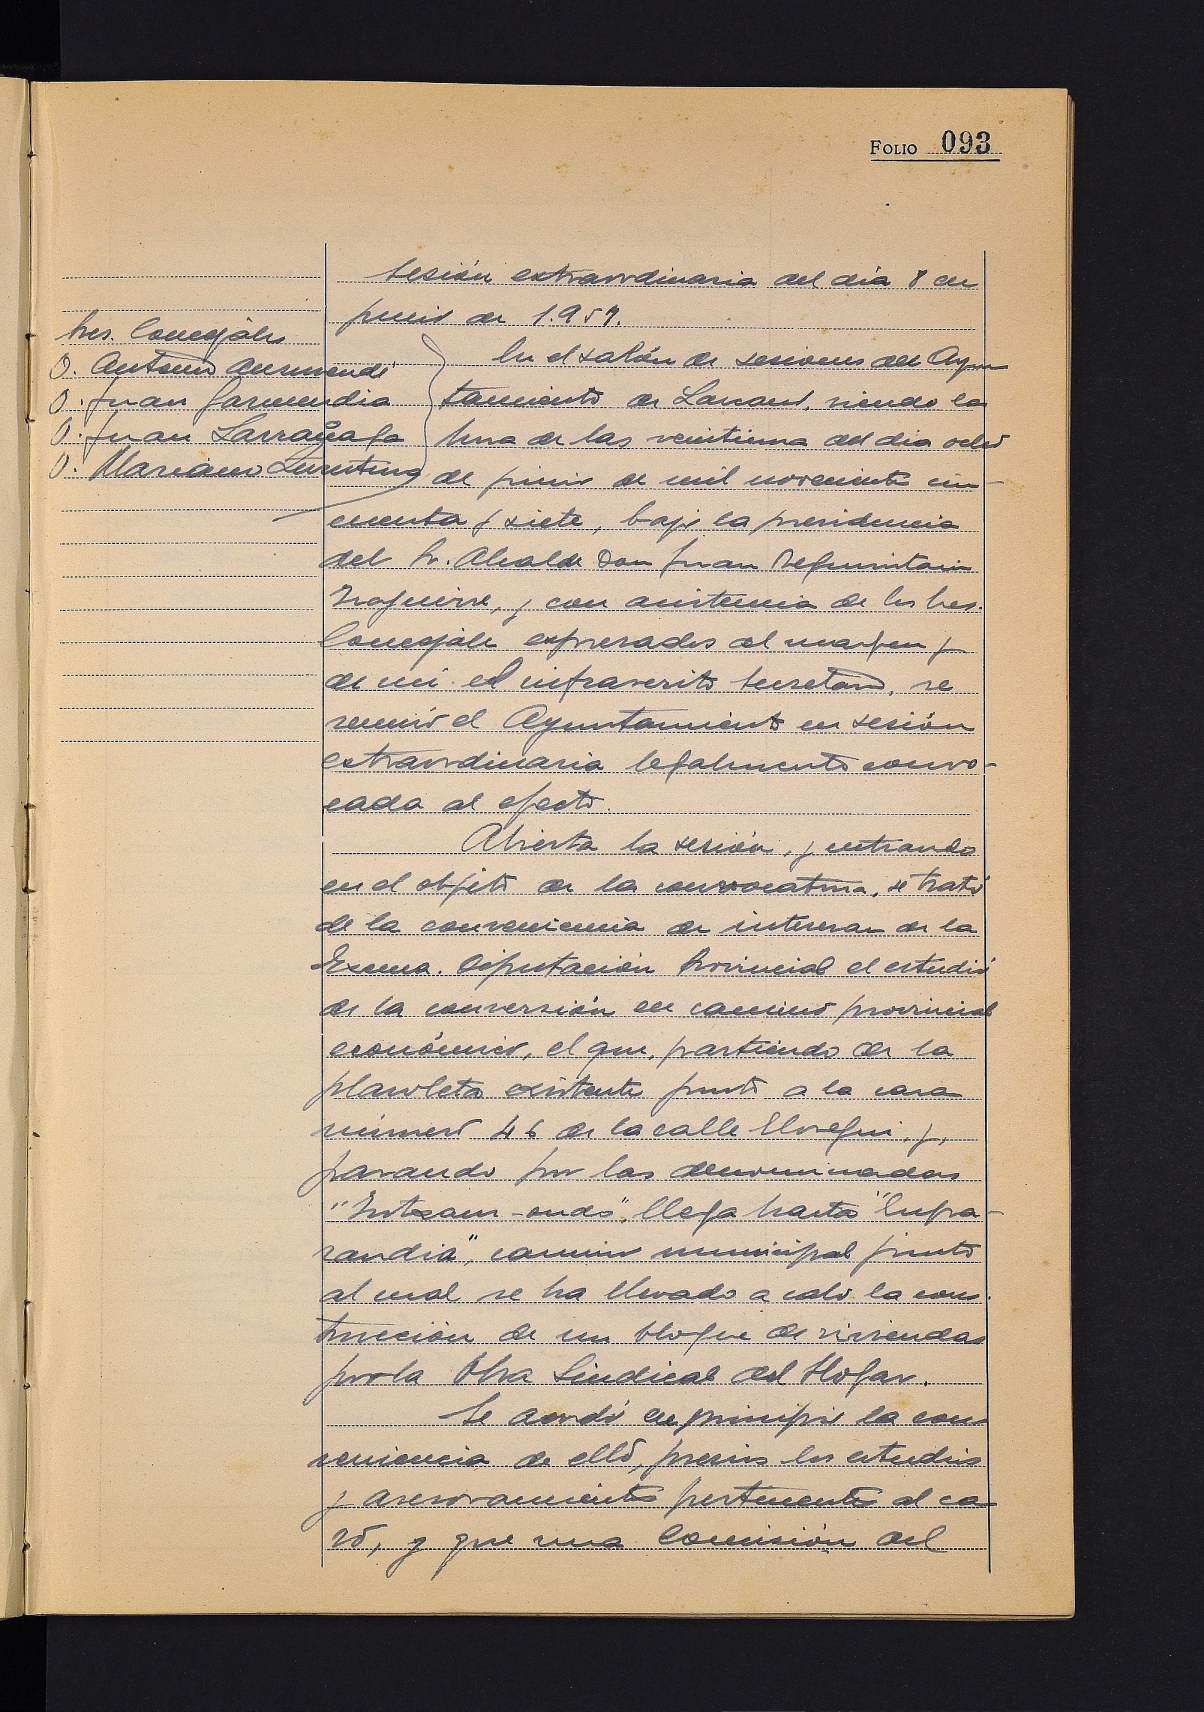 FOLIO 093
Sesión extraordinaria del día 8 de
junio de 1.957.
Sres. Concejales
D. Antonio Aurmendi
D. Juan Garmendia
D. Juan Larrañaga
D. Mariano
En el salón de sesiones del Ayun
tamiento de Lasarte, siendo la
hora de las veintiuna del día ocho
de junio de mil novecientos cin-
cuenta y siete, bajo la presidencia
del Sr. Alcalde Don Juan
Izaguirre, y con asistencia de los Sres.
Concejales expresados al margen y
de mi el infrascrito Secretario, se
reunió el Ayuntamiento en sesión
extraordinaria legalmente convo-
cada al efecto.
Abierta la sesión, y entrando
en el objeto de la convocatoria, se trató
de la conveniencia de interesar de la
Excma. Diputación Provincial el estudio
de la conversión en camino provincial
económico, el que, partiendo de la
plazoleta existente junto a la casa
número 46 de la calle Elosegui, y,
pasando por las denominadas
"Intxaur-ondo", llega hasta
camino municipal junto
al cual se ha llevado a cabo la cons-
trucción de un bloque de viviendas
por la Obra Sindical del Hogar.
Se acordó en principio la con
veniencia de ello, previos los estudios
y asesoramientos pertinentes al ca
so, y que una Comisión del